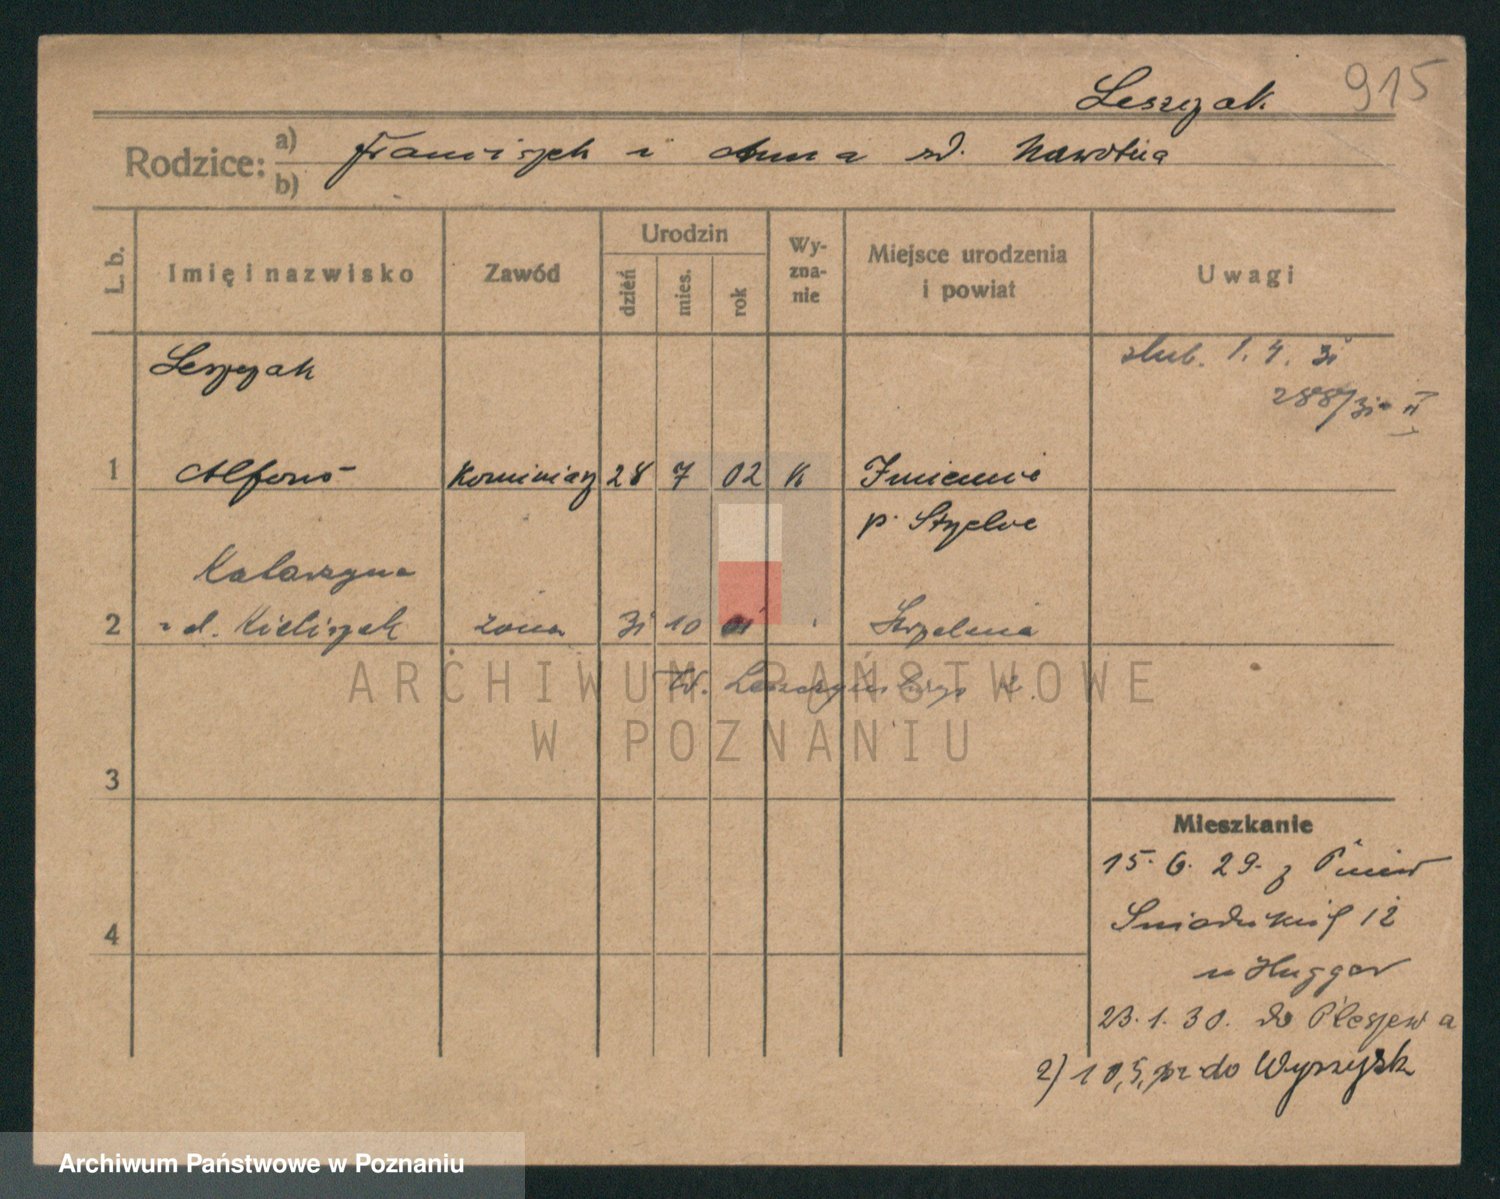 915
Leszczak
Rodzice: a) b) Franciszek i Anna zd. Nawotna
L. b.
Imię i nazwisko
Zawód
Urodzin
dzień
mies.
rok
Wy-
zna-
nie
Miejsce urodzenia
i powiat
Uwagi
Leszczak
ślub. 1. 4. 31
288/31 II
1 Alfons Kominiarz 28 7 02 K
p. Strzelno
Katarzyna
2 zd. Kieliszek żona 31 10 01
3
4
Mieszkanie
15. 6. 29. z Pniew
12
u Hugger
23. 1. 30. do Pleszewa
2) do Wyrzysk
ARCHIWUM PAŃSTWOWE
W POZNANIU
Archiwum Państwowe w Poznaniu